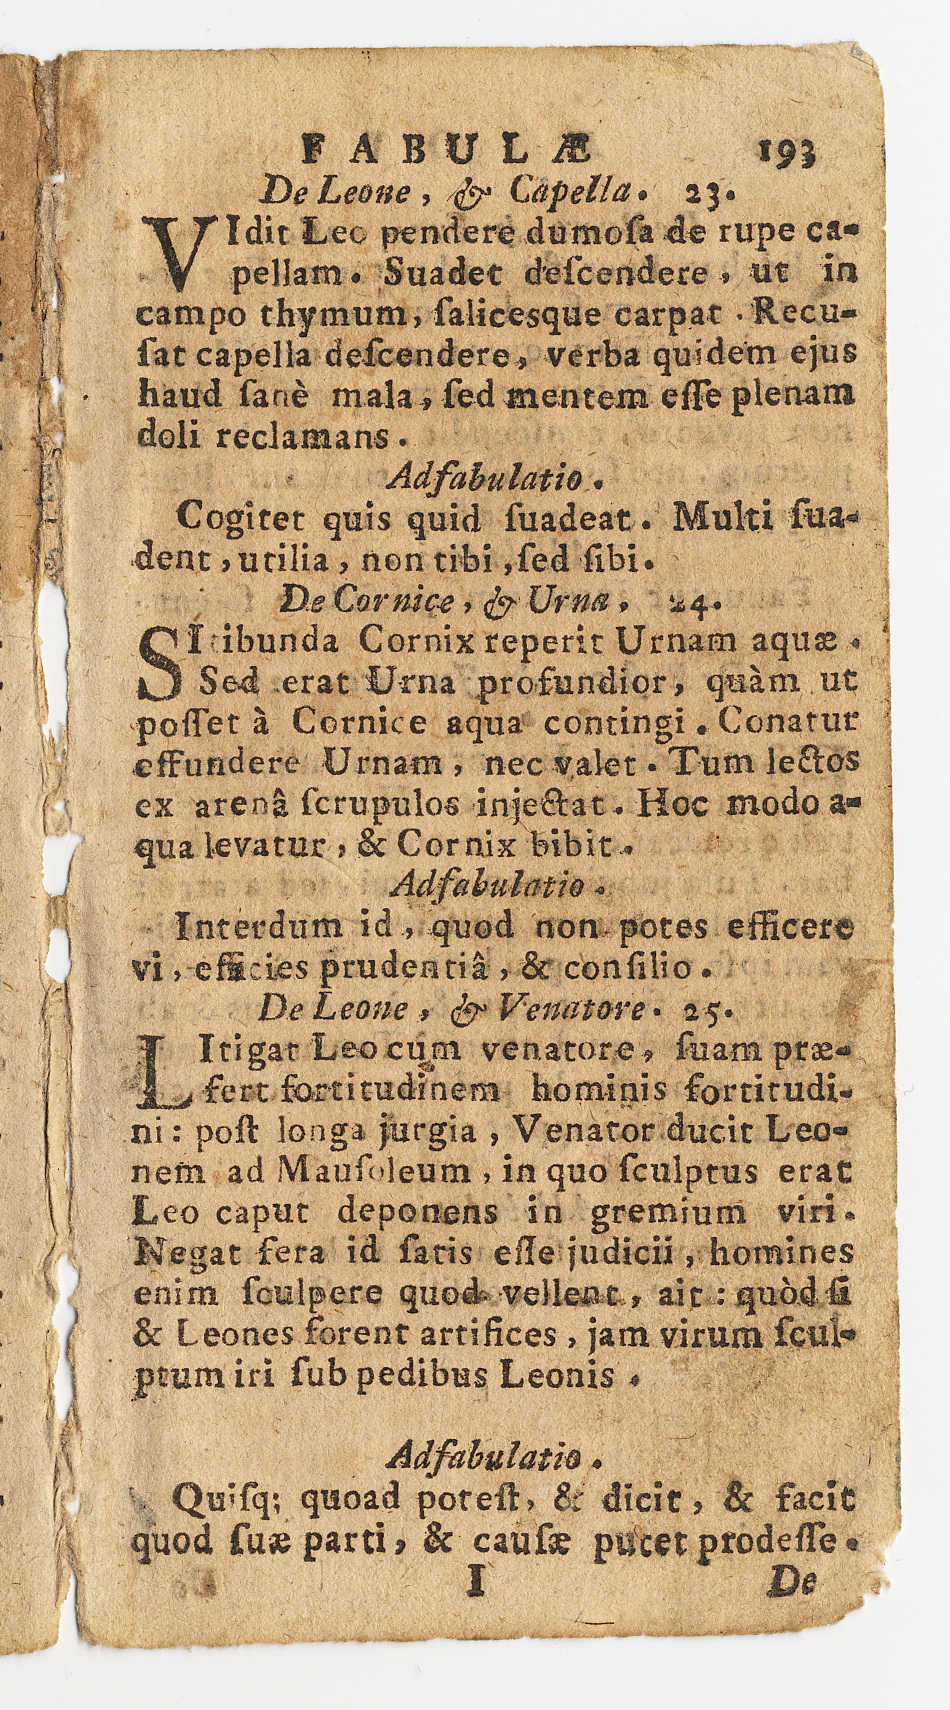 FABULÆ 193
De Leone, & Capella. 23.
VIdit Leo pendere dumoſa de rupe ca-
pellam. Suadet deſcendere, ut in
campo thymum, ſalicesque carpat. Recu-
ſat capella deſcendere, verba quidem ejus
haud ſanè mala, ſed mentem eſſe plenam
doli reclamans.
Adfabulatio.
Cogitet quis quid ſuadeat. Multi ſua-
dent, utilia, non tibi, ſed ſibi.
De Cornice, & Urna. 24.
SItibunda Cornix reperit Urnam aquæ.
Sed erat Urna profundior, quàm ut
poſſet à Cornice aqua contingi. Conatur
effundere Urnam, nec valet. Tum lectos
ex arenâ ſcrupulos injectat. Hoc modo a-
qua levatur, & Cornix bibit.
Adfabulatio.
Interdum id, quod non potes efficere
vi, efficies prudentiâ, & conſilio.
De Leone, & Venatore. 25.
LItigat Leo cum venatore, ſuam præ-
fert fortitudinem hominis fortitudi-
ni: poſt longa jurgia, Venator ducit Leo-
nem ad Mauſoleum, in quo ſculptus erat
Leo caput deponens in gremium viri.
Negat fera id ſatis eſſe judicii, homines
enim ſculpere quod vellent, ait: quòd ſi
& Leones forent artifices, jam virum ſcul-
ptum iri ſub pedibus Leonis.
Adfabulatio.
Quiſq; quoad poteſt, & dicit, & facit
quod ſuæ parti, & cauſæ putet prodeſſe.
I De